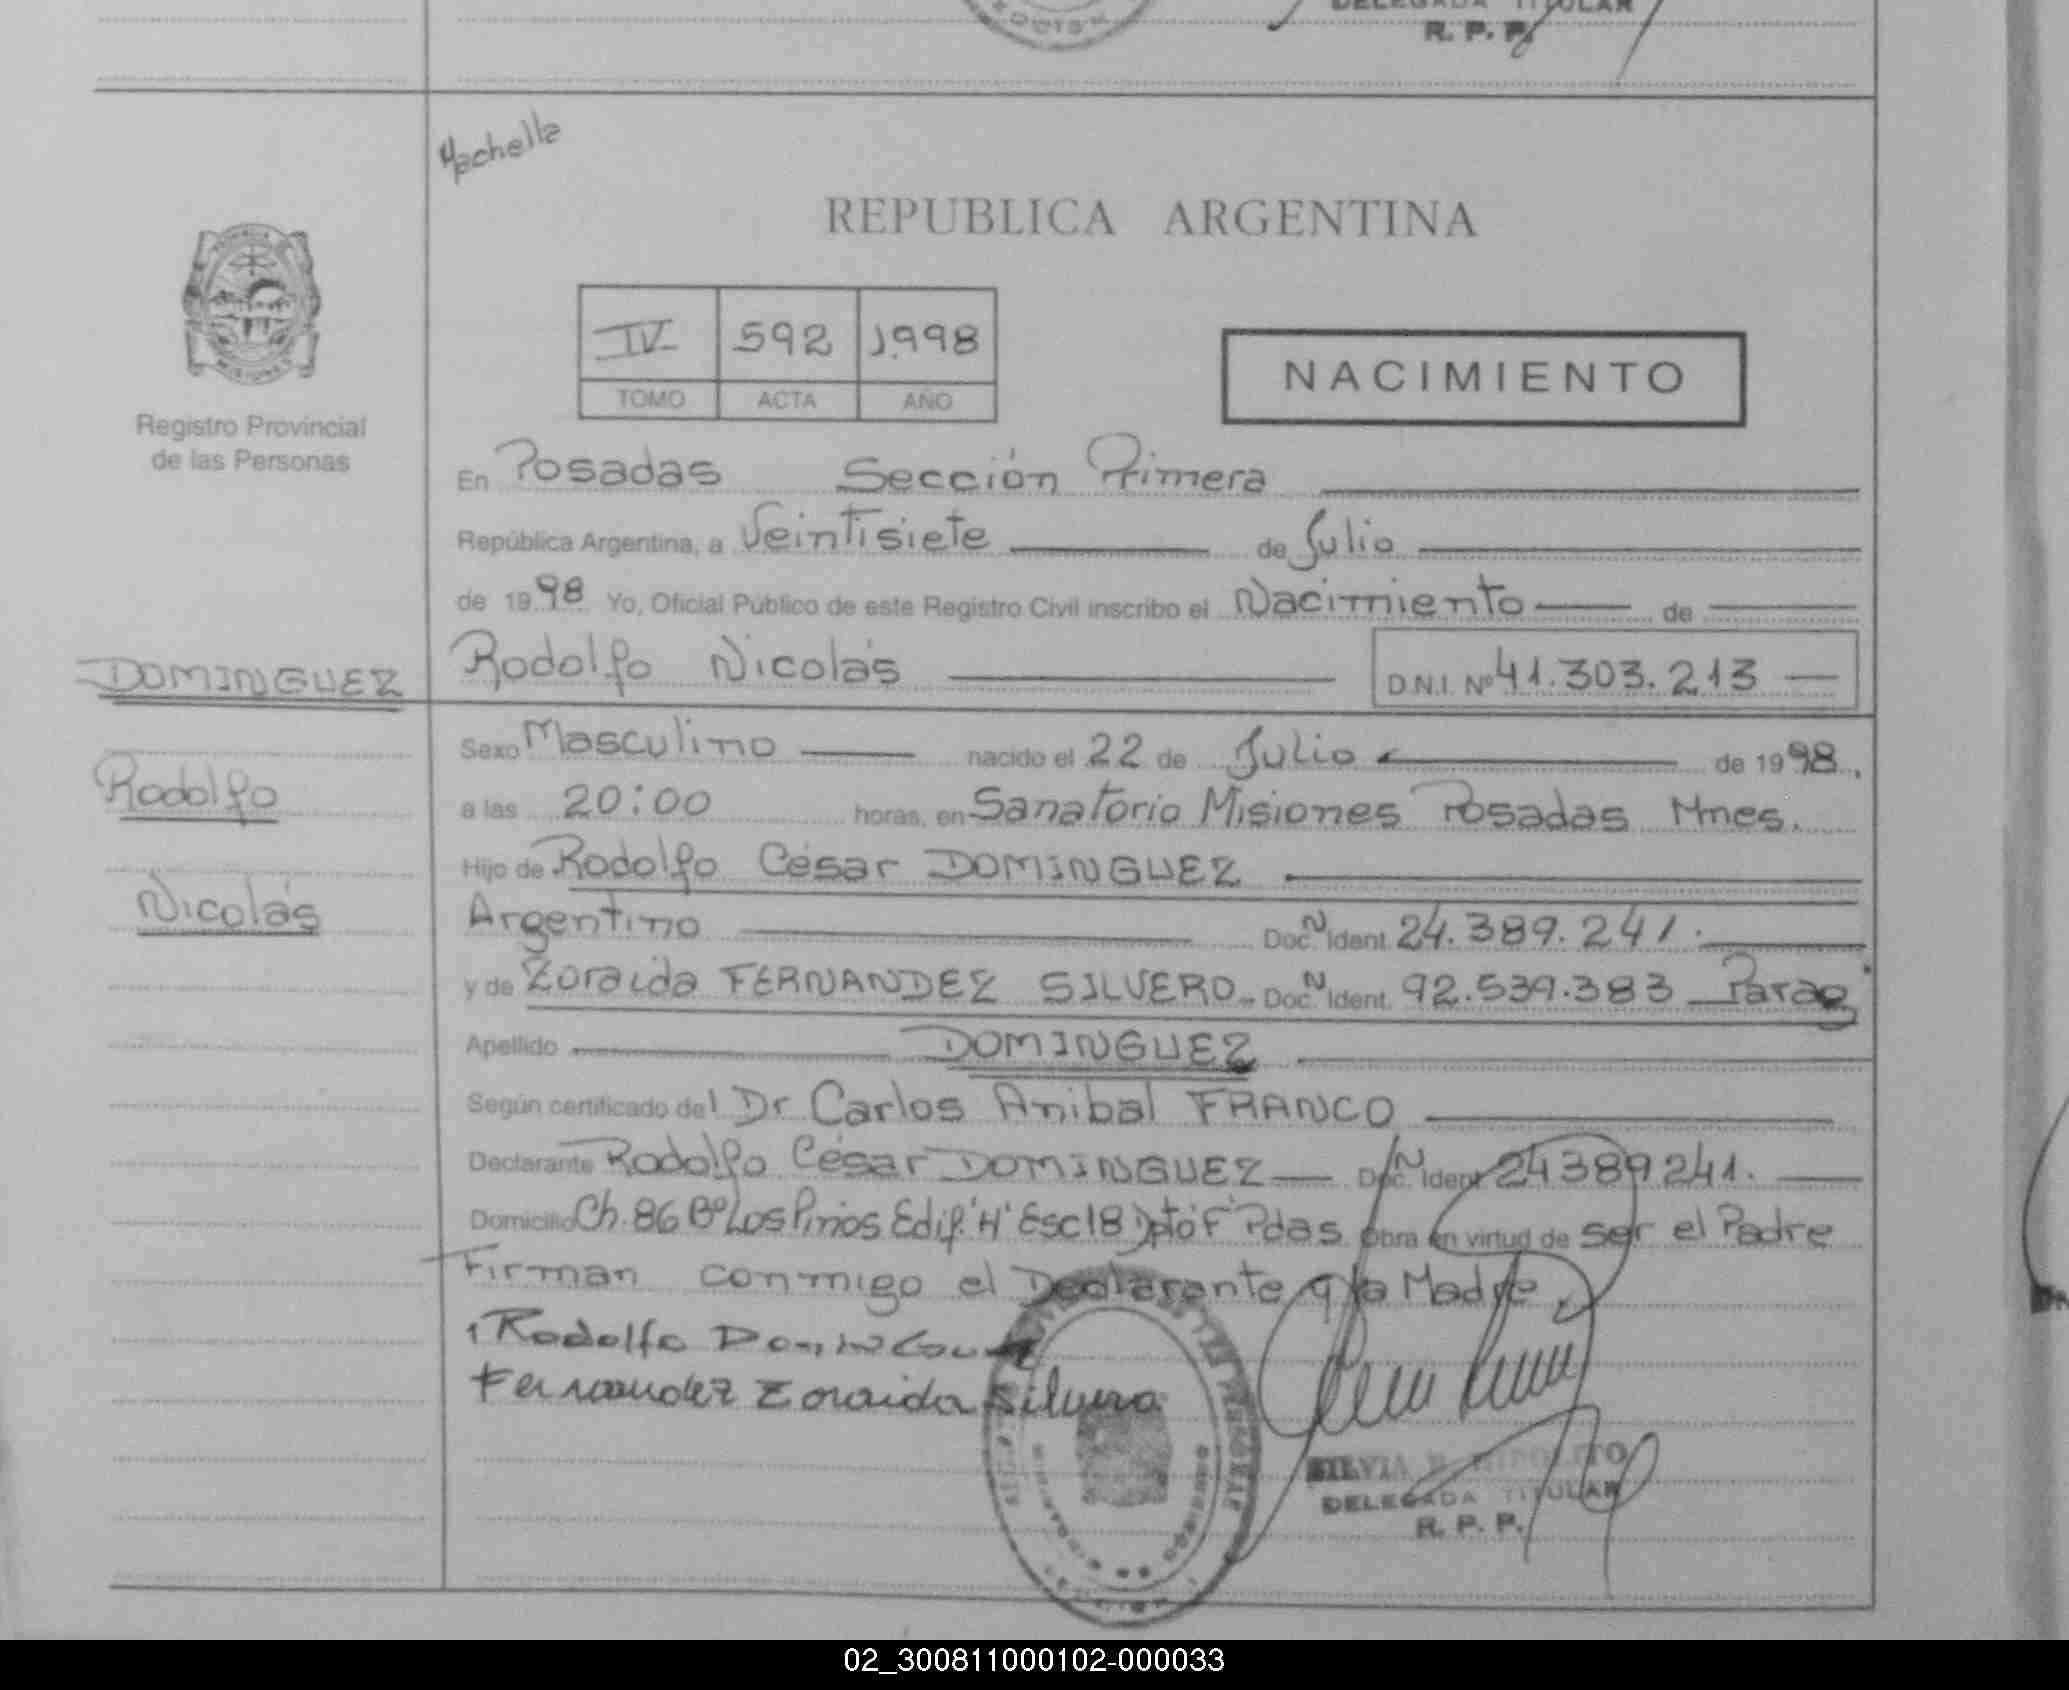 DELEGADA TITULAR
R. P. P.
REPUBLICA ARGENTINA
IV 592 1.998
TOMO ACTA AÑO
NACIMIENTO
Registro Provincial
de las Personas
En Posadas Sección Primera
República Argentina, a Veintisiete de Julio
de 1998 Yo, Oficial Público de este Registro Civil inscribo el Nacimiento de
DOMINGUEZ
Rodolfo Nicolás D.N.I. Nº 41.303.213
Sexo Masculino nacido el 22 de Julio de 1998.
Rodolfo
a las 20:00 horas, en Sanatorio Misiones Posadas Mnes.
Hijo de Rodolfo César DOMINGUEZ
Nicolás
Argentino Doc. N Ident. 24.389.241.
y de Zoraida FERNANDEZ SILVERO Doc. N Ident. 92.539.383 Parag
Apellido DOMINGUEZ
Según certificado del Dr Carlos Anibal FRANCO
Declarante Rodolfo César DOMINGUEZ Doc. N Ident 24389241.
Domicilio Ch. 86 Bº Los Pinos Edif. "H" Esc 18 Dpto "F" Pdas Obra en virtud de ser el Padre
Firman conmigo el Declarante y la Madre
Rodolfo Dominguez
Fernandez Zoraida Silvero
SILVIA HIPOLITO
DELEGADA TITULAR
R. P. P.
02_300811000102-000033